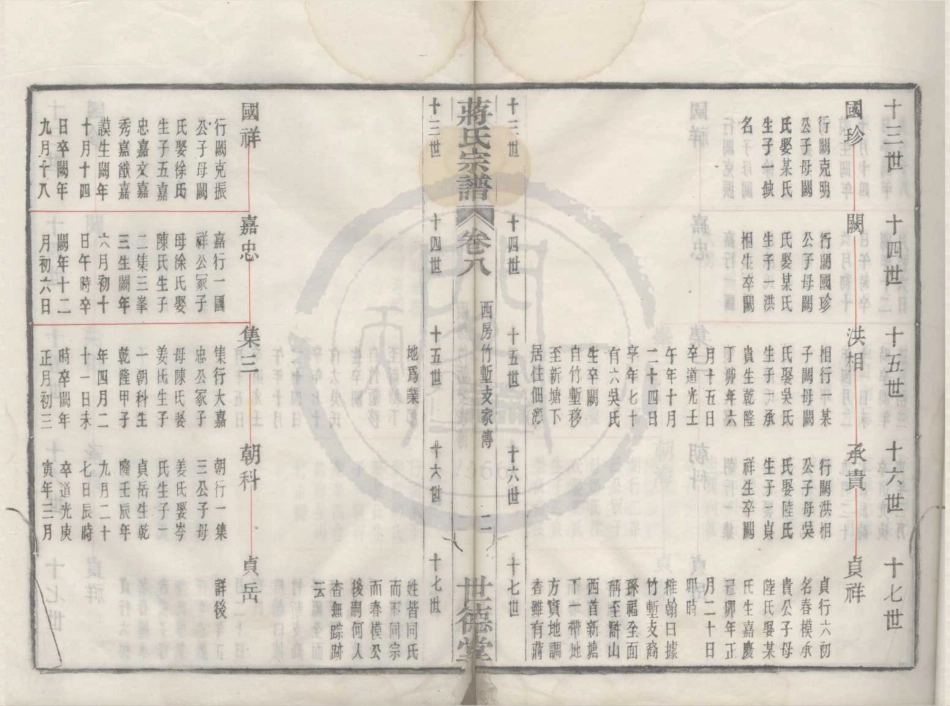 十三世
國珍
公子母闕
氏娶某氏
名
十四世
闕
行闕國珍
公子母闕
氏娶某氏
生子一洪
相生卒闕
十五世
洪相
相行一某
子母闕
氏娶吳氏
生子一承
貴生乾隆
丁卯年六
月十五日
卒道光壬
午年十月
二十四日
享年七十
有六吳氏
生卒闕
自竹塹移
至新塘下
居住佃彭
地爲業
十六世
承貴
行闕洪相
公子母吳
氏娶陸氏
生子一貞
祥生卒闕
十七世
貞祥
貞行六初
名春模承
貴公子母
陸氏娶某
氏生嘉慶
卯年正
月二十日
卯時
維翰曰據
竹塹支裔
孫福全面
稱至滸山
西首新塘
下一帶地
方實地調
查雖有蔣
姓皆同氏
而不同宗
而春模公
後嗣何人
杳無踪跡
云
十三世
十四世
十五世
十六世
十七世
蔣氏宗譜
卷八
西房竹塹支家傳
二
世德堂
十三世
十四世
十五世
十六世
十七世
國祥
行闕克振
公子母闕
氏娶徐氏
生子五嘉
忠嘉文嘉
秀嘉猷嘉
謨生闕年
十月十四
日卒闕年
九月十八
嘉忠
嘉行一國
祥公冢子
母徐氏娶
陳氏生子
二集三峯
三生闕年
六月初十
日午時卒
闕年十二
月初六日
集三
集行大嘉
忠公冢子
母陳氏娶
姜氏生子
一朝科生
乾隆甲子
年四月二
十一日未
時卒闕年
正月初三
朝科
朝行一集
三公子母
姜氏娶岑
氏生子一
貞岳生乾
隆壬辰年
九月二十
七日辰時
卒道光庚
寅年三月
貞岳
詳後